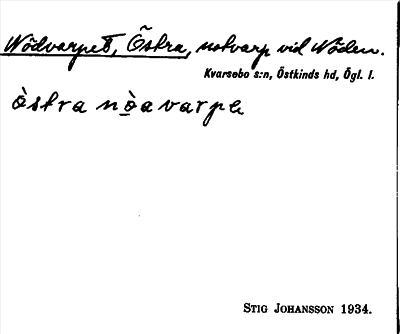 Nödvarpet, Östra, notvarp vid Nöden.
Kvarsebo s:n, Östkinds hd, Ögl. l.
ò̀stra nò̲avarpe
STIG JOHANSSON 1934.